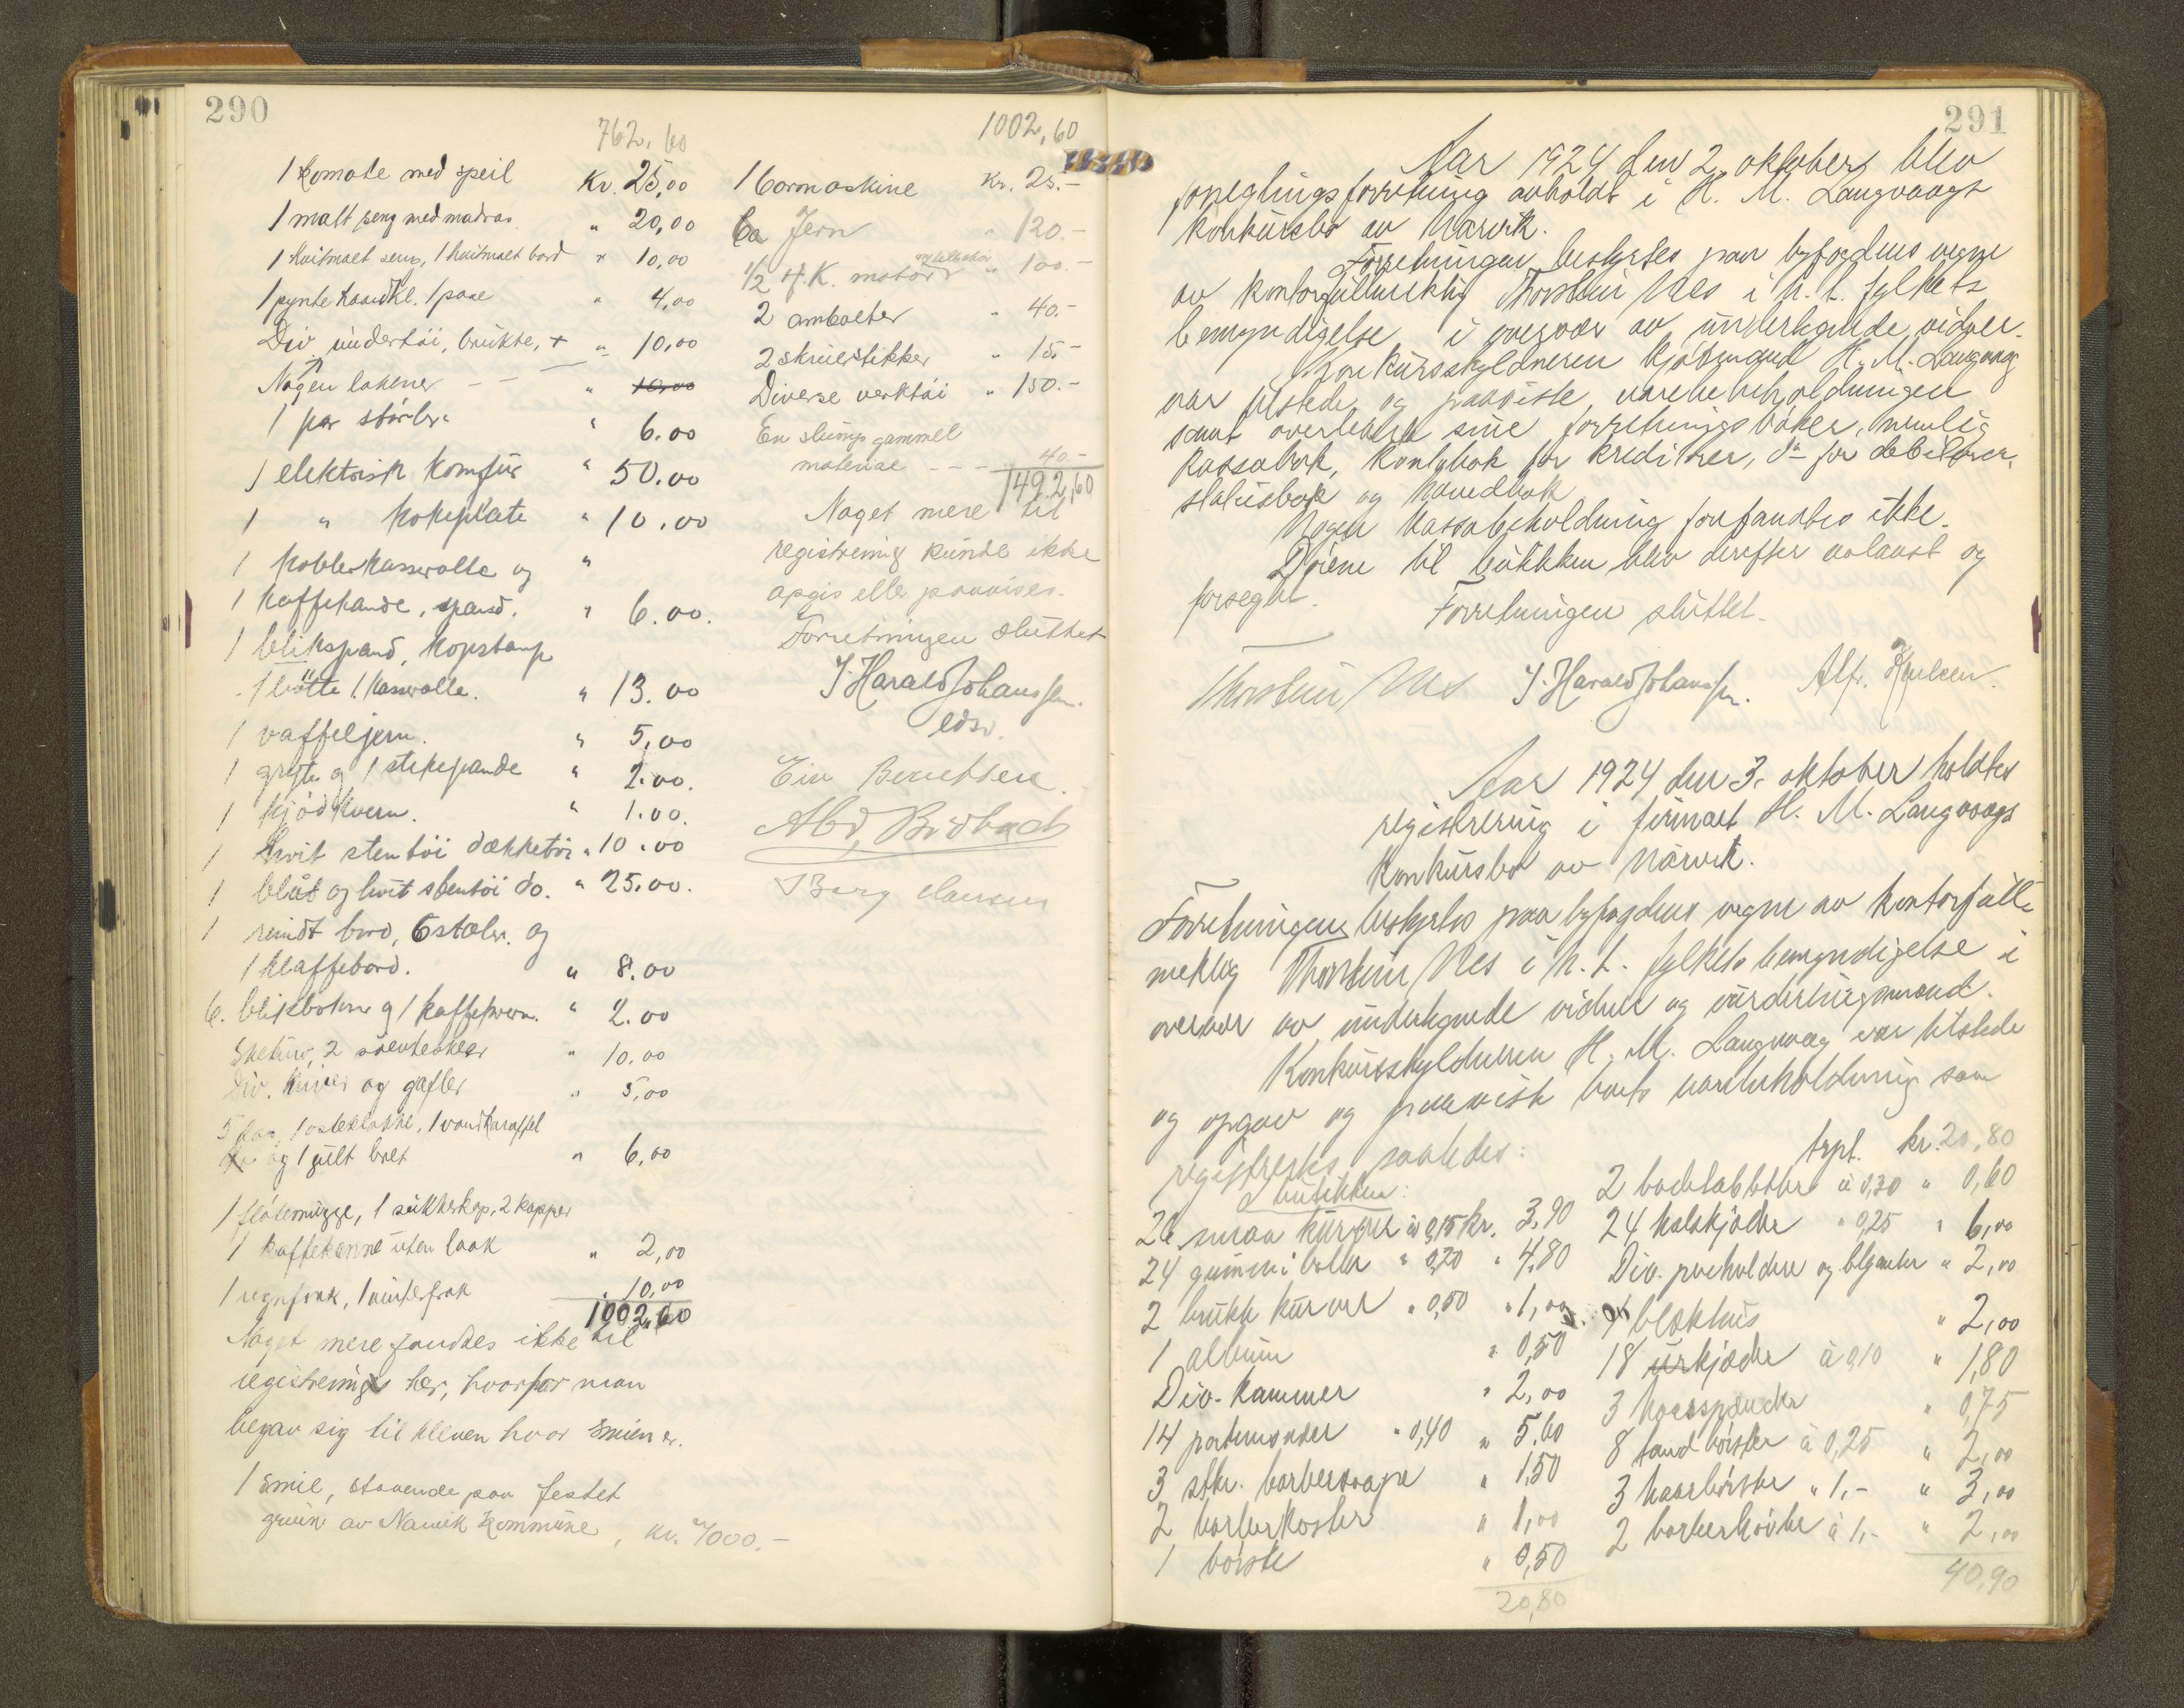 290
762,60
1 Komode med speil Kr. 25,00
1 malt seng med madras " 20,00
1 hvitmalt seng, 1 hvitmalt bord " 10,00
1 pynte haandkl. 1 " 4,00
Div. undertöi, brukte, + " 10,00
Nogen lakener - - " 10,00
1 par störler " 6.00
1 elektrisk komfür " 50.00
1 " kokeplate " 10.00
1 kobberkasserolle og "
1 kaffekande, spand. " 6.00.
1 blikspand, kopstamp
1 bötte 1 kasserolle. " 13.00
1 vaffeljern. " 5,00
1 gryte og 1 stekepande " 2.00.
1 kjödkvern. " 1.00.
1 hvit stentöi dækketöi " 10.00
1 blåt og hvit stentöi do. " 25.00.
1 rundt bord, 6 stoler. og
1 klaffebord. " 8.00
6. blikbokser og 1 kaffekvern. " 2.00
2 " 10,00
Div. kniver og gafler " 5,00
5 1 osteklokke, 1 vandkaraffel
og 1 gült bret " 6,00
1 flötemugge, 1 sukkerkop, 2 kopper
1 kaffekanne uten laak " 2,00
1 regnfrak, 1 vinterfrak " 10,00
1002,60
Noget mere fandtes ikke til
registrering her, hvorfor man
begav sig til kleven hvor smien er.
1 smie, staaende paa festet
grund av Narvik Kommune, kr. 000.-
1002,60
1 bormaskine Kr. 25.-
Ca Jern " 120.-
1/2 H.K. motor og tilbehör " 100.-
2 ambolter " 40.-
2 skruestikker " 15.-
Diverse verktöi " 150.-
En slump gammel
materiae - - - 40.-
1492,60
Noget mere til
registrering kunde ikke
opgis eller paavises.
Forretningen sluttet
J. Harald Johanssen.
edsv.
Eiv Berntsen.
Abd. Brobach
Berg Hansen
291
Aar 1924 den 2. oktober blev
forseglingsforretning avholdt i H. M. Langvaags
konkursbo av Narvik.
Forretningen bestyrtes paa byfogdens vegne
av kontorfullmektig Thorstein Nes i h. t. fylkets
bemyndigelse i overvær av underkgnede vidner.
Konkursskyldneren kjöbmand H. M. Langvaag
var tilstede og paaviste varebeholdningen
samt overleverte sine forretningsböker, nemlig
kassabok, kontobok for kreditorer, do for debitorer,
statusbok og hovedbok
Nogen kassabeholdning forfandtes ikke.
Dörene til butikken blev derefter avlaast og
forseglet.
Forretningen sluttet.
Thorstein Nes J. Harald Johanssen. Alfr.
Aar 1924 den 3. oktober holdtes
registrering i firmaet H. M. Langvaags
konkursbo av Narvik.
Forretningen bestyrtes paa byfogdens vegne av kontorfull-
mektig Thorstein Nes i h. t. fylkets bemyndigelse i
overvær av underkgnede vidner og vurderingsmænd.
Konkursskyldneren H. M. Langvaag var tilstede
og opgav og paaviste boets varebeholdning som
registrertes saaledes:
I butikken:
26 smaa kurver à 0,15 kr. 3,90
24 gummi boller " 0,20 " 4,80
2 brukk kurver " 0,50 " 1,00
1 album " 0,50
Div. kammer " 2,00
14 portmonder " 0,40 " 5,60
3 stkr. barbersaape " 1,50
2 barberkoster " 1,00
1 börste " 0,50
20,80
trpt. kr. 20,80
2 badetabletter à 0,30 " 0,60
24 halskjæder " 0,25 " 6,00
Div. peneholdere og blyanter " 2,00
4 blækhus " 2,00
18 urkjæder à 0,10 " 1,80
3 haarspænder " 0,75
8 tandbörster à 0,25 " 2,00
3 haarbörster " 1,- " 3,00
2 barberhövler à 1,- " 2,00
40,90